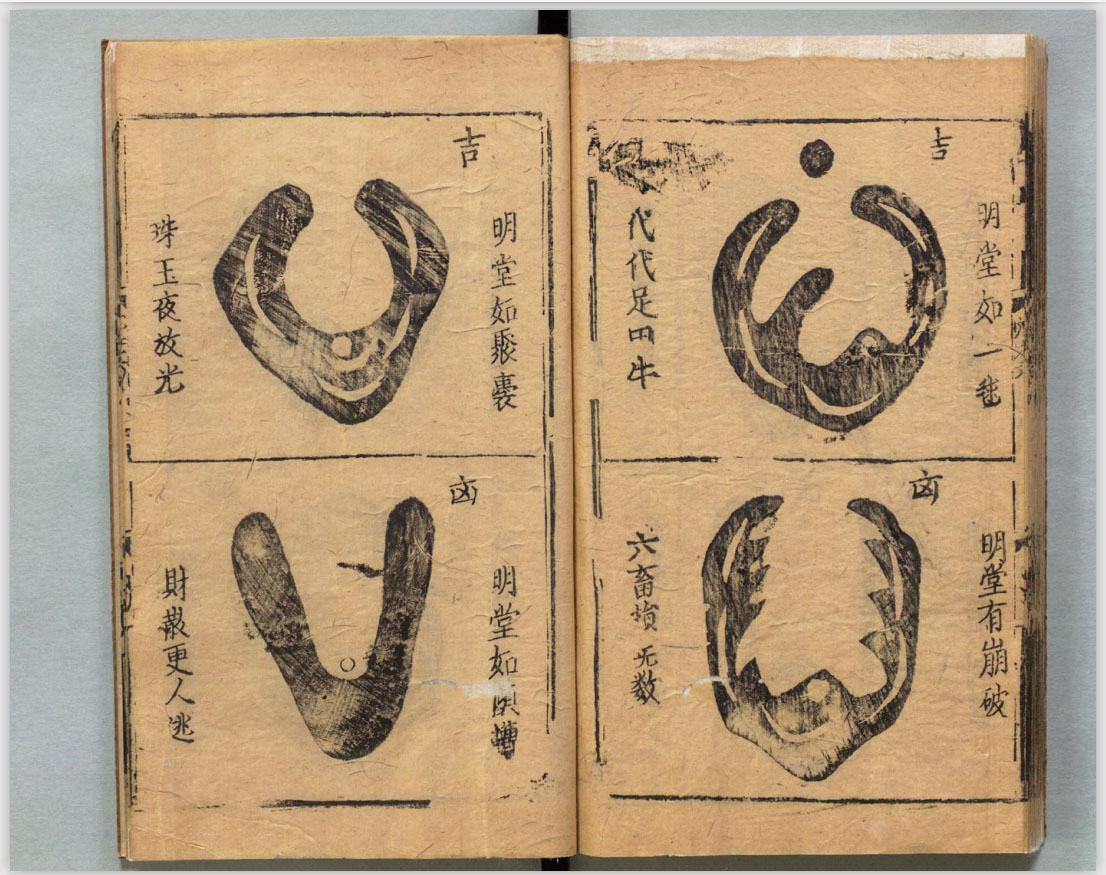 吉
明堂如一
代代足田牛
凶
明堂有崩破
六畜損无数
吉
明堂如聚裹
珠玉夜放光
凶
明堂如槽
財散更人逃